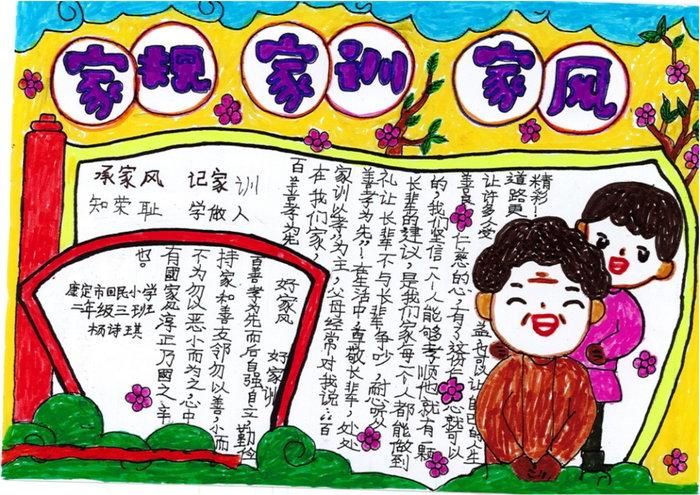 家规 家训 家风
承家风 记家训
知荣耻 学做人
百善孝为先
在我们家,
家训以孝为主,父母经常对我说:“百
善孝为先”.在生活中尊敬长辈,处处
礼让长辈不与长辈争吵,耐心听
长辈的建议,是我们家每一个人都能做到
的,我们坚信一个人能够孝顺他就有一颗
善良仁慈的心,有了这份仁心就可以
让许多人受益也可以让自己的人生
道路更
精彩!
好家风
好家训
百善孝为先而后自强自立勤俭
持家和善友邻勿以善小而
不为勿以恶小而为之心中
有國家家淳正乃國之幸
也。
康定市回民小学
二年级三班
杨诗琪